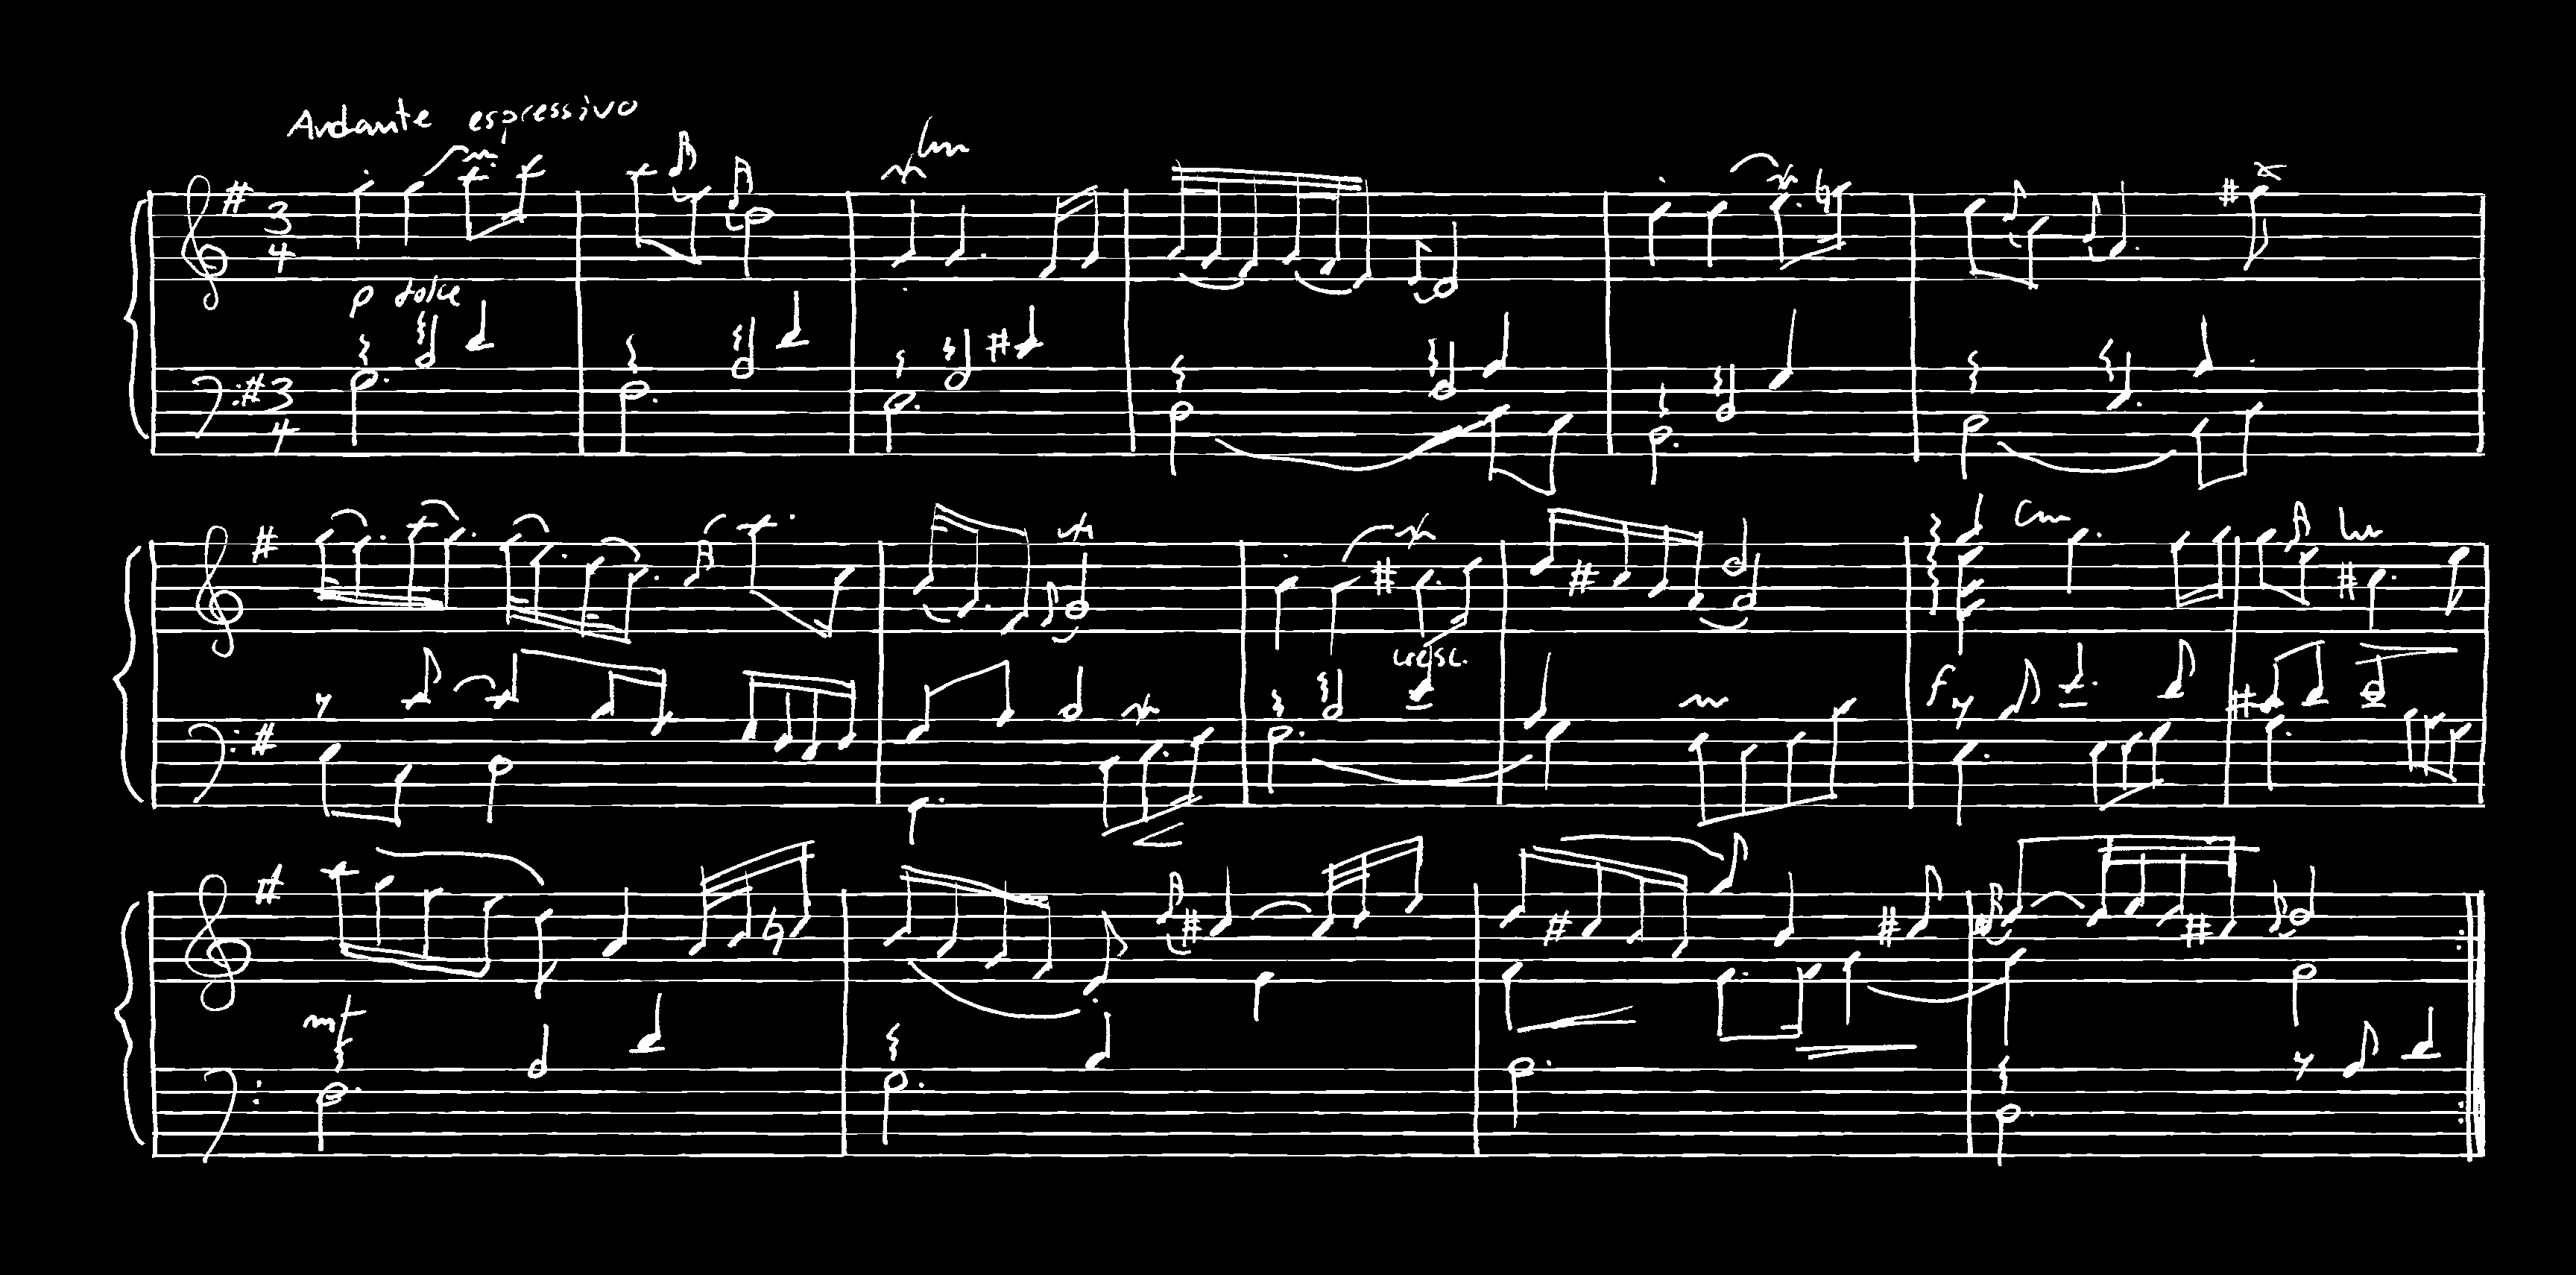 Andante espressivo
3 4
p dolce
3 4
cresc.
f
mf